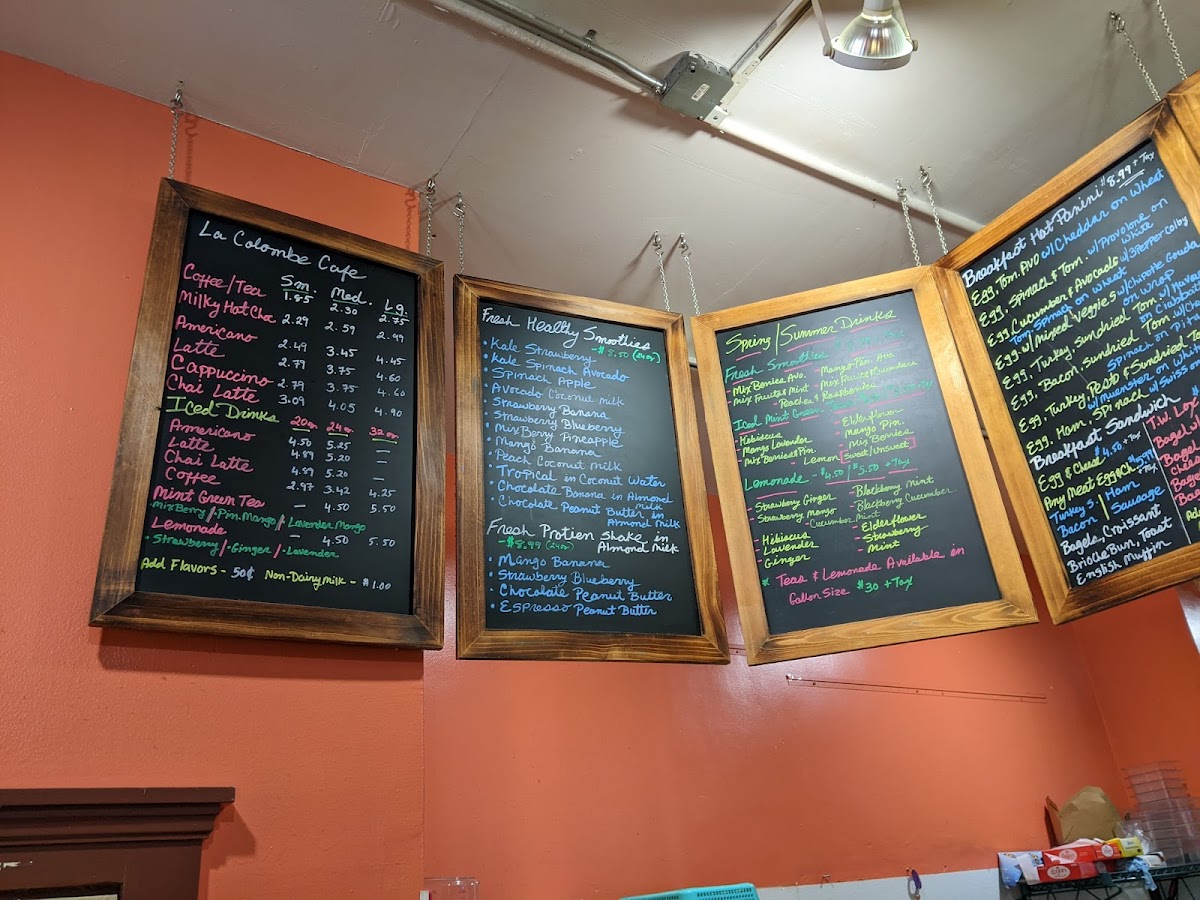 La Colombe Cafe
Sm. Med. Lg.
Coffee/Tea 1.85 2.30 2.75
Milky Hot Cha 2.29 2.59 2.99
Americano 2.49 3.45 4.45
Latte 2.79 3.75 4.60
Cappuccino 2.79 3.75 4.60
Chai Latte 3.09 4.05 4.90
Iced Drinks 20oz. 24oz. 32oz.
Americano 4.50 5.25 —
Latte 4.89 5.20 —
Chai Latte 4.89 5.20 —
Coffee 2.97 3.42 4.25
Mint Green Tea — 4.50 5.50
• Mix Berry/Pin. Mango/Lavender Mango
Lemonade — 4.50 5.50
• Strawberry/•Ginger/•Lavender
Add Flavors - 50¢ Non-Dairy milk - $1.00
Fresh Healthy Smoothies
- $8.50 (24oz)
• Kale Strawberry
• Kale Spinach Avocado
• Spinach Apple
• Avocado Coconut milk
• Strawberry Banana
• Strawberry Blueberry
• Mix Berry Pineapple
• Mango Banana
• Peach Coconut Milk
• Tropical in Coconut Water
• Chocolate Banana in Almond milk
• Chocolate Peanut Butter in
Almond milk
Fresh Protien Shake in
- $8.99 (24oz) Almond Milk
• Mango Banana
• Strawberry Blueberry
• Chocolate Peanut Butter
• Espresso Peanut Butter
Spring/Summer Drinks
Fresh Smoothies
Mix Berries Avo. - Mango Pin. Avo.
Mix Fruits & Mint - Mix Fruits & Cucumbers
- Peaches & Raspberries
Iced Mint Green
- Hibiscus - Elderflower
- Mango Lavender - Mango Pin.
- Mix Berries & Pin. - Mix Berries
- Lemon [Sweet/Unsweet]
Lemonade - $4.50/$5.50 + Tax
- Strawberry Ginger - Blackberry Mint
- Strawberry Mango - Blackberry Cucumber
- Cucumber Mint
- Hibiscus - Elderflower
- Lavender - Strawberry
- Ginger - Mint
* Teas & Lemonade Available in
Gallon Size $30 + Tax
Breakfast Hot Panini $8.99 + Tax
Egg, Tom. Avo w/Cheddar on Wheat
Egg, Spinach & Tom. w/Provolone on White
Egg, Cucumber & Avocado w/3Pepper Colby
Tom. Spinach on Wheat
Egg w/mixed Veggies w/Chipotle Gouda on Wrap
Egg, Turkey, Sundried Tom.
Egg, Bacon, Sundried Tom.
Spinach on
Egg, Turkey, Pesto & Sundried
w/Muenster on White
Egg, Ham, Spinach w/Swiss on
Breakfast Sandwich
Egg & Cheese $4.50 + Tax
Any Meat Egg & Ch $5.99 + Tax
Turkey S | Ham
Bacon | Sausage
Bagel, Croissant
Brioche Bun, Toast
English Muffin
T.W. Lox
Bagel
Bagel